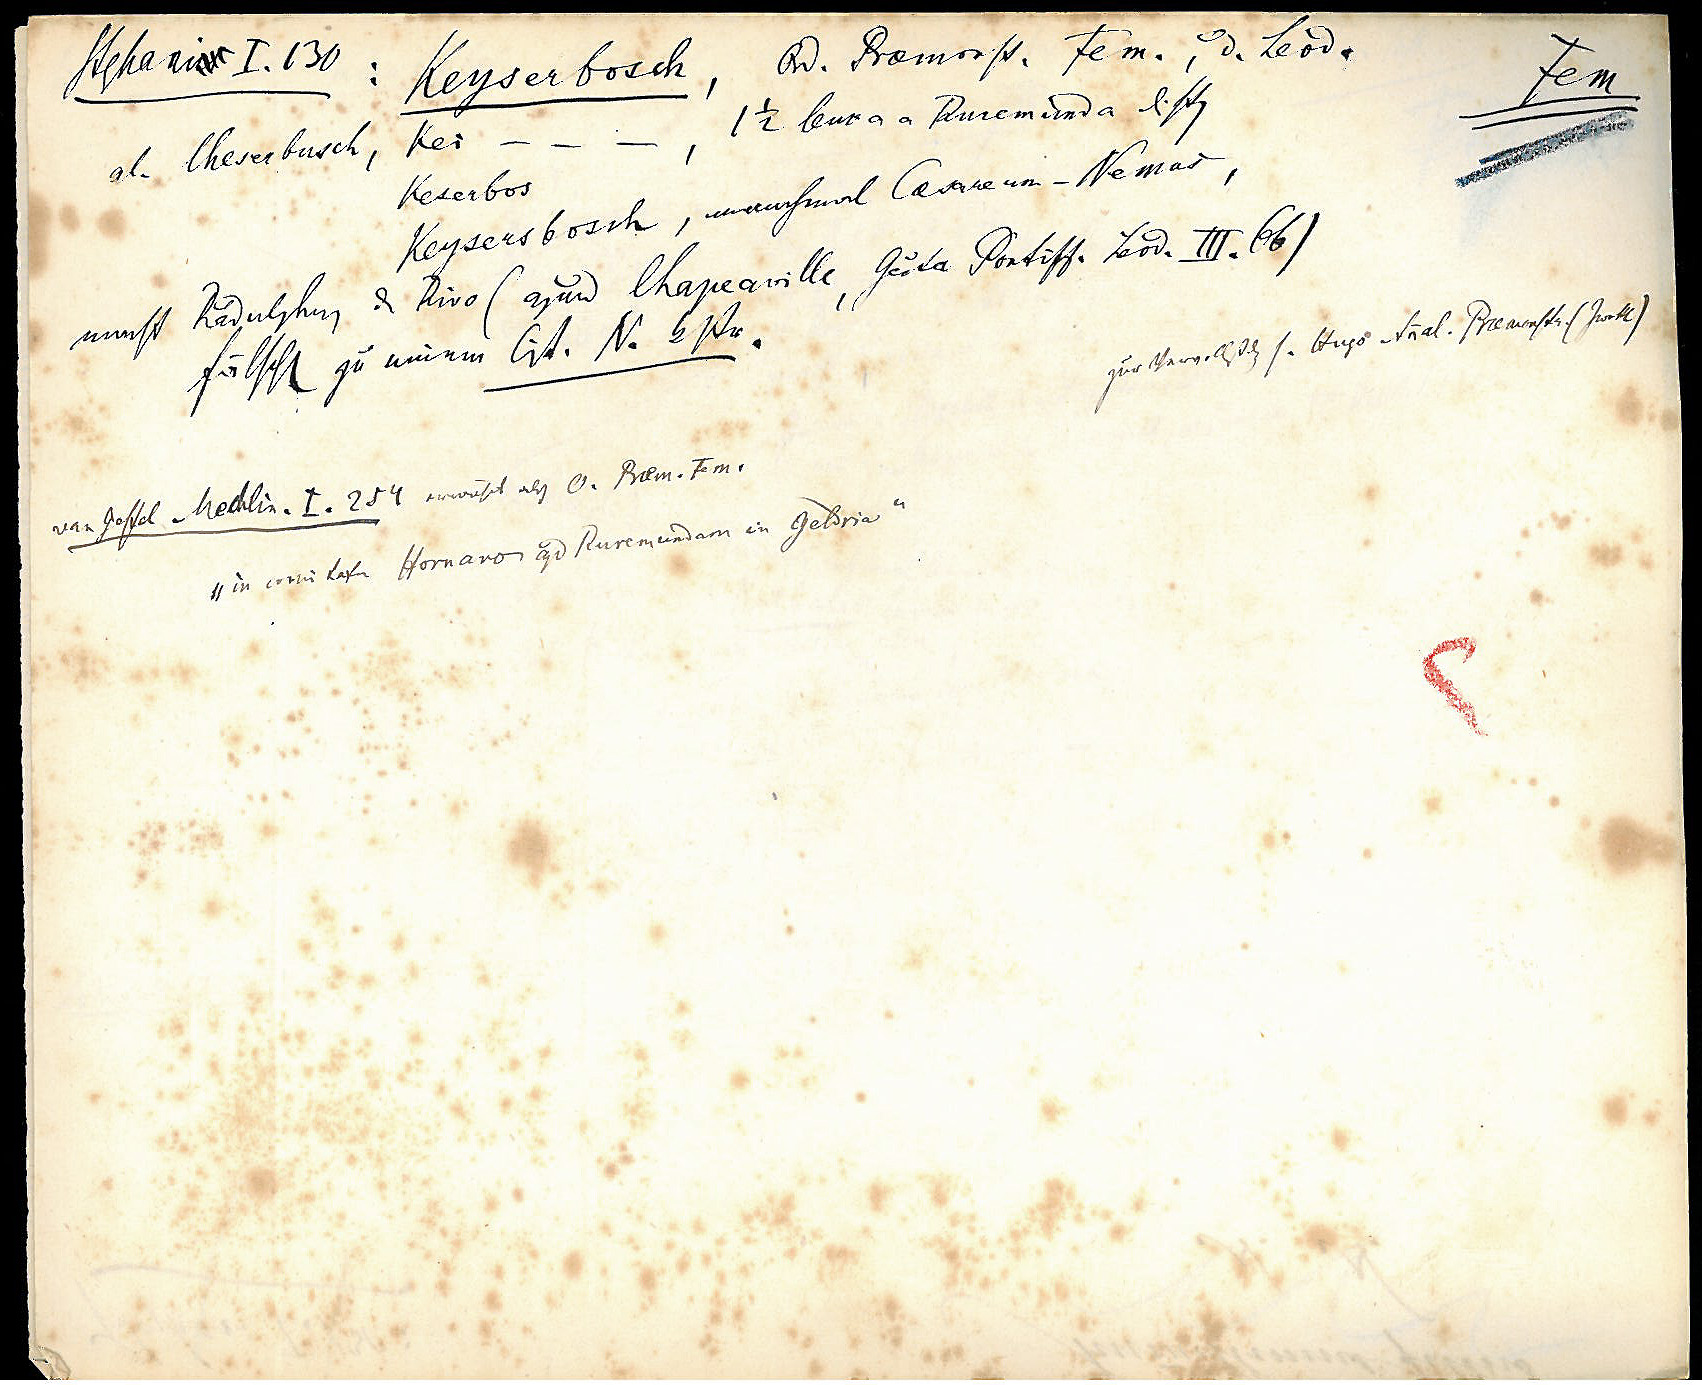 Stephani I. 130 : Keyserbosch, Ord. Præmonst. Fem., d. Leod.
Fem
al. Cheserbusch, Kei — — —, 1½ leuca a Ruremunda dist
Keserbos
Keysersbosch, manchmal Cæsareum-Nemus,
macht Radulphus de Rivo (apud Chapeaville, Gesta Pontiff. Leod. III. 66)
fälschl zu einem Cist. N. Kl.
zur s. Hugo Annal. Præmonstr.
van Gestel Mechlin. I. 254 erwähnt als O. Præm. Fem.
„in comitatu Hornano apd Ruremundam in Geldria"